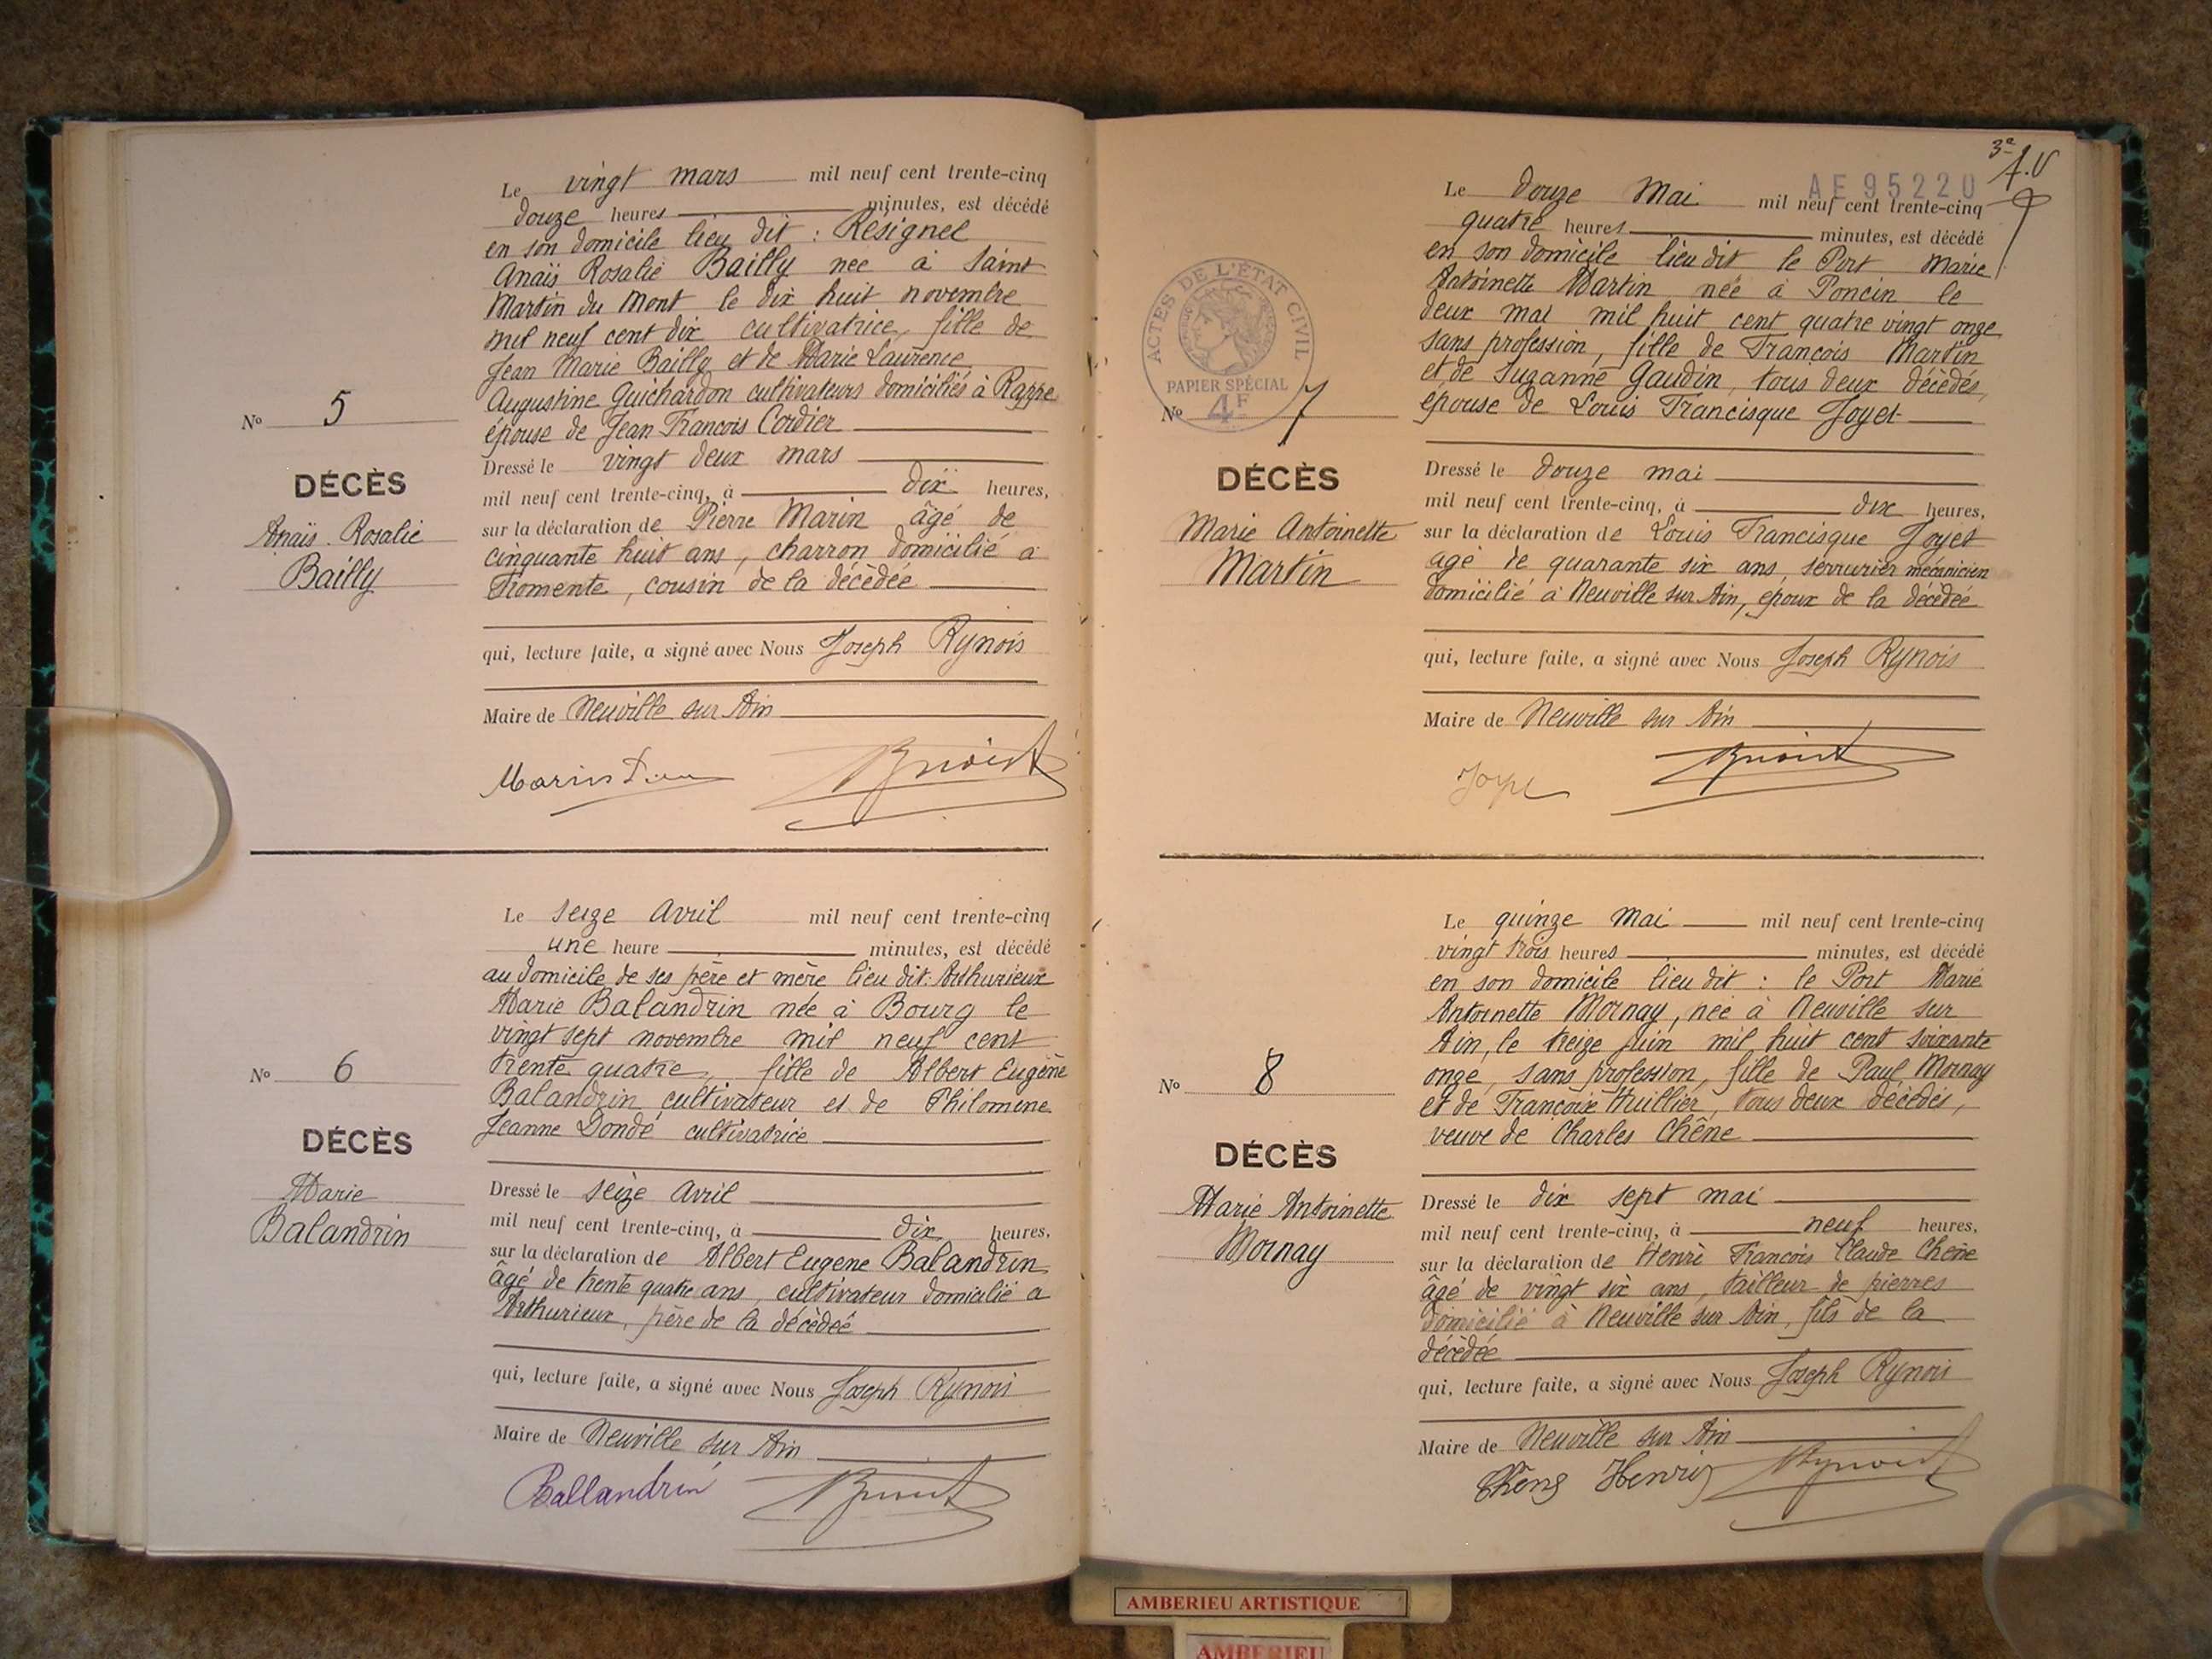 Le vingt mars mil neuf cent trente-cinq
douze heures minutes, est décédé
en son domicile lieu dit : Résignel
Anaïs Rosalie Bailly née à Saint
Martin du Mont le dix huit novembre
mil neuf cent dix cultivatrice, fille de
Jean Marie Bailly et de Marie Laurence
Augustine Guichardon cultivateurs domiciliés à Rappe
épouse de Jean François Cordier
Dressé le vingt deux mars
mil neuf cent trente-cinq, à dix heures,
sur la déclaration de Pierre Marin âgé de
cinquante huit ans, charron domicilié à
Fromente, cousin de la décédée
qui, lecture faite, a signé avec Nous Joseph Rynois
Maire de Neuville sur Ain
Marin
No 5
DÉCÈS
Anaïs Rosalie
Bailly
Le seize Avril mil neuf cent trente-cinq
une heure minutes, est décédé
au domicile de ses père et mère lieu dit: Arthurieux
Marie Balandrin née à Bourg le
vingt sept novembre mil neuf cent
trente quatre, fille de Albert Eugène
Balandrin cultivateur et de Philomène
Jeanne Dondé cultivatrice
Dressé le seize Avril
mil neuf cent trente-cinq, à dix heures,
sur la déclaration de Albert Eugene Balandrin
âgé de trente quatre ans, cultivateur domicilié à
Arthurieux, père de la décédée
qui, lecture faite, a signé avec Nous Joseph Rynois
Maire de Neuville sur Ain
Ballandrin
No 6
DÉCÈS
Marie
Balandrin
AE 95220
Le douze Mai mil neuf cent trente-cinq
quatre heures minutes, est décédé
en son domicile lieu dit le Port Marie
Antoinette Martin née à Poncin le
deux mai mil huit cent quatre vingt onze
sans profession, fille de François Martin
et de Suzanne Gaudin, tous deux décédés,
épouse de Louis Francisque Joyet
Dressé le douze mai
mil neuf cent trente-cinq, à dix heures,
sur la déclaration de Louis Francisque Joyet
âgé de quarante six ans, serrurier mécanicien
domicilié à Neuville sur Ain, époux de la décédée
qui, lecture faite, a signé avec Nous Joseph Rynois
Maire de Neuville sur Ain
ACTES DE L'ÉTAT CIVIL
PAPIER SPÉCIAL
4F
No 7
DÉCÈS
Marie Antoinette
Martin
Le quinze Mai mil neuf cent trente-cinq
vingt trois heures minutes, est décédé
en son domicile lieu dit : le Port Marie
Antoinette Mornay, née à Neuville sur
Ain, le treize juin mil huit cent soixante
onze, sans profession, fille de Paul Mornay
et de Françoise Thuillier, tous deux décédés,
veuve de Charles Chêne
Dressé le dix sept mai
mil neuf cent trente-cinq, à neuf heures,
sur la déclaration de Henri François Claude Chêne
âgé de vingt six ans, tailleur de pierres
domicilié à Neuville sur Ain, fils de la
décédée
qui, lecture faite, a signé avec Nous Joseph Rynois
Maire de Neuville sur Ain
Chêne Henri
No 8
DÉCÈS
Marie Antoinette
Mornay
AMBERIEU ARTISTIQUE
AMBERIEU